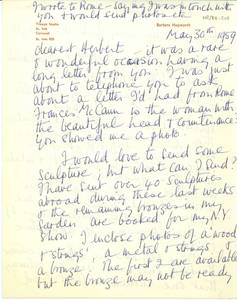 I wrote to Rome - saying I was in touch with
you & would send photos etc.
Barbara Hepworth
Trewyn Studio
St. Ives
Cornwall
May 30th 1959
dearest Herbert - it was a rare
& wonderful occasion having a
long letter from you. I was just
about to telephone you to ask
about a letter I'd had from Rome
Frances McCann is the woman with
the beautiful head & countenance:
you showed me a photo.
I would love to send some
sculpture; but what can I send?
I have sent over 40 sculptures
abroad during these last weeks
& the remaining bronzes in my
garden are booked for my N.Y.
show. I enclose photos of a 'wood
& strings', a metal & strings &
a bronze. The first 2 are available
but the bronze may not be ready